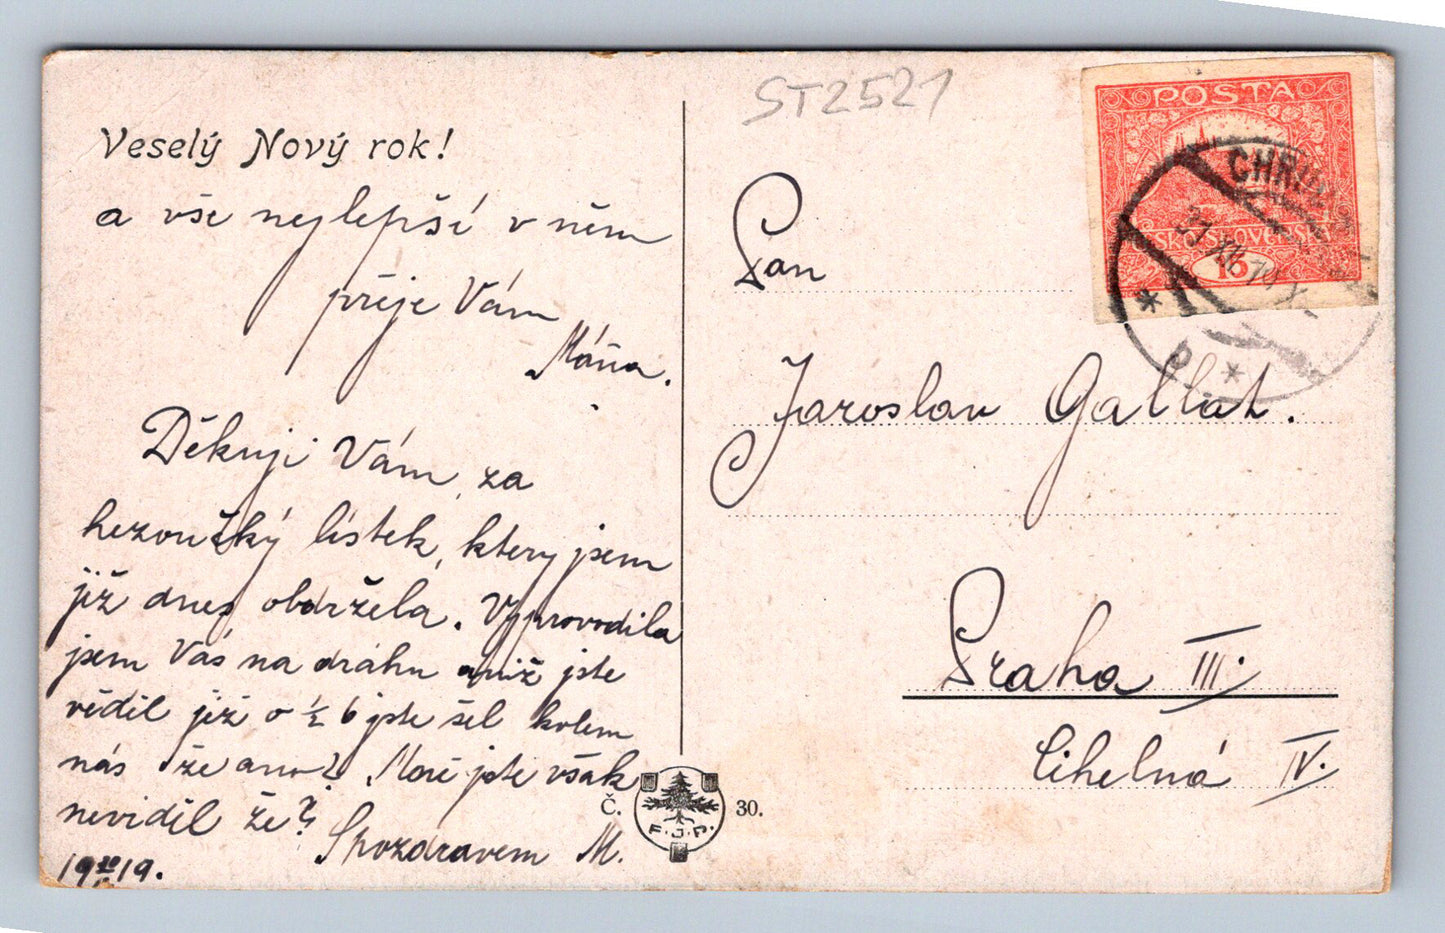 ST2521
Veselý Nový rok!
a vše nejlepší v něm
přeje Vám
Máňa.
Děkuji Vám za
hezoučký lístek, ktery jsem
již dnes obdržela. Vyprovodila
jsem Vás na dráhu aniž jste
věděl již o ½ 6 jste šel kolem
nás že ano? Mne jste však
neviděl že?
Spozdravem M.
19 19.
POSTA
ČESKO-SLOVENSKÁ
15
CHRUD
31 XII 19 X
Pan
Jaroslav Gallat.
Praha III.
Cihelná IV.
Č. 30.
F.J.P.